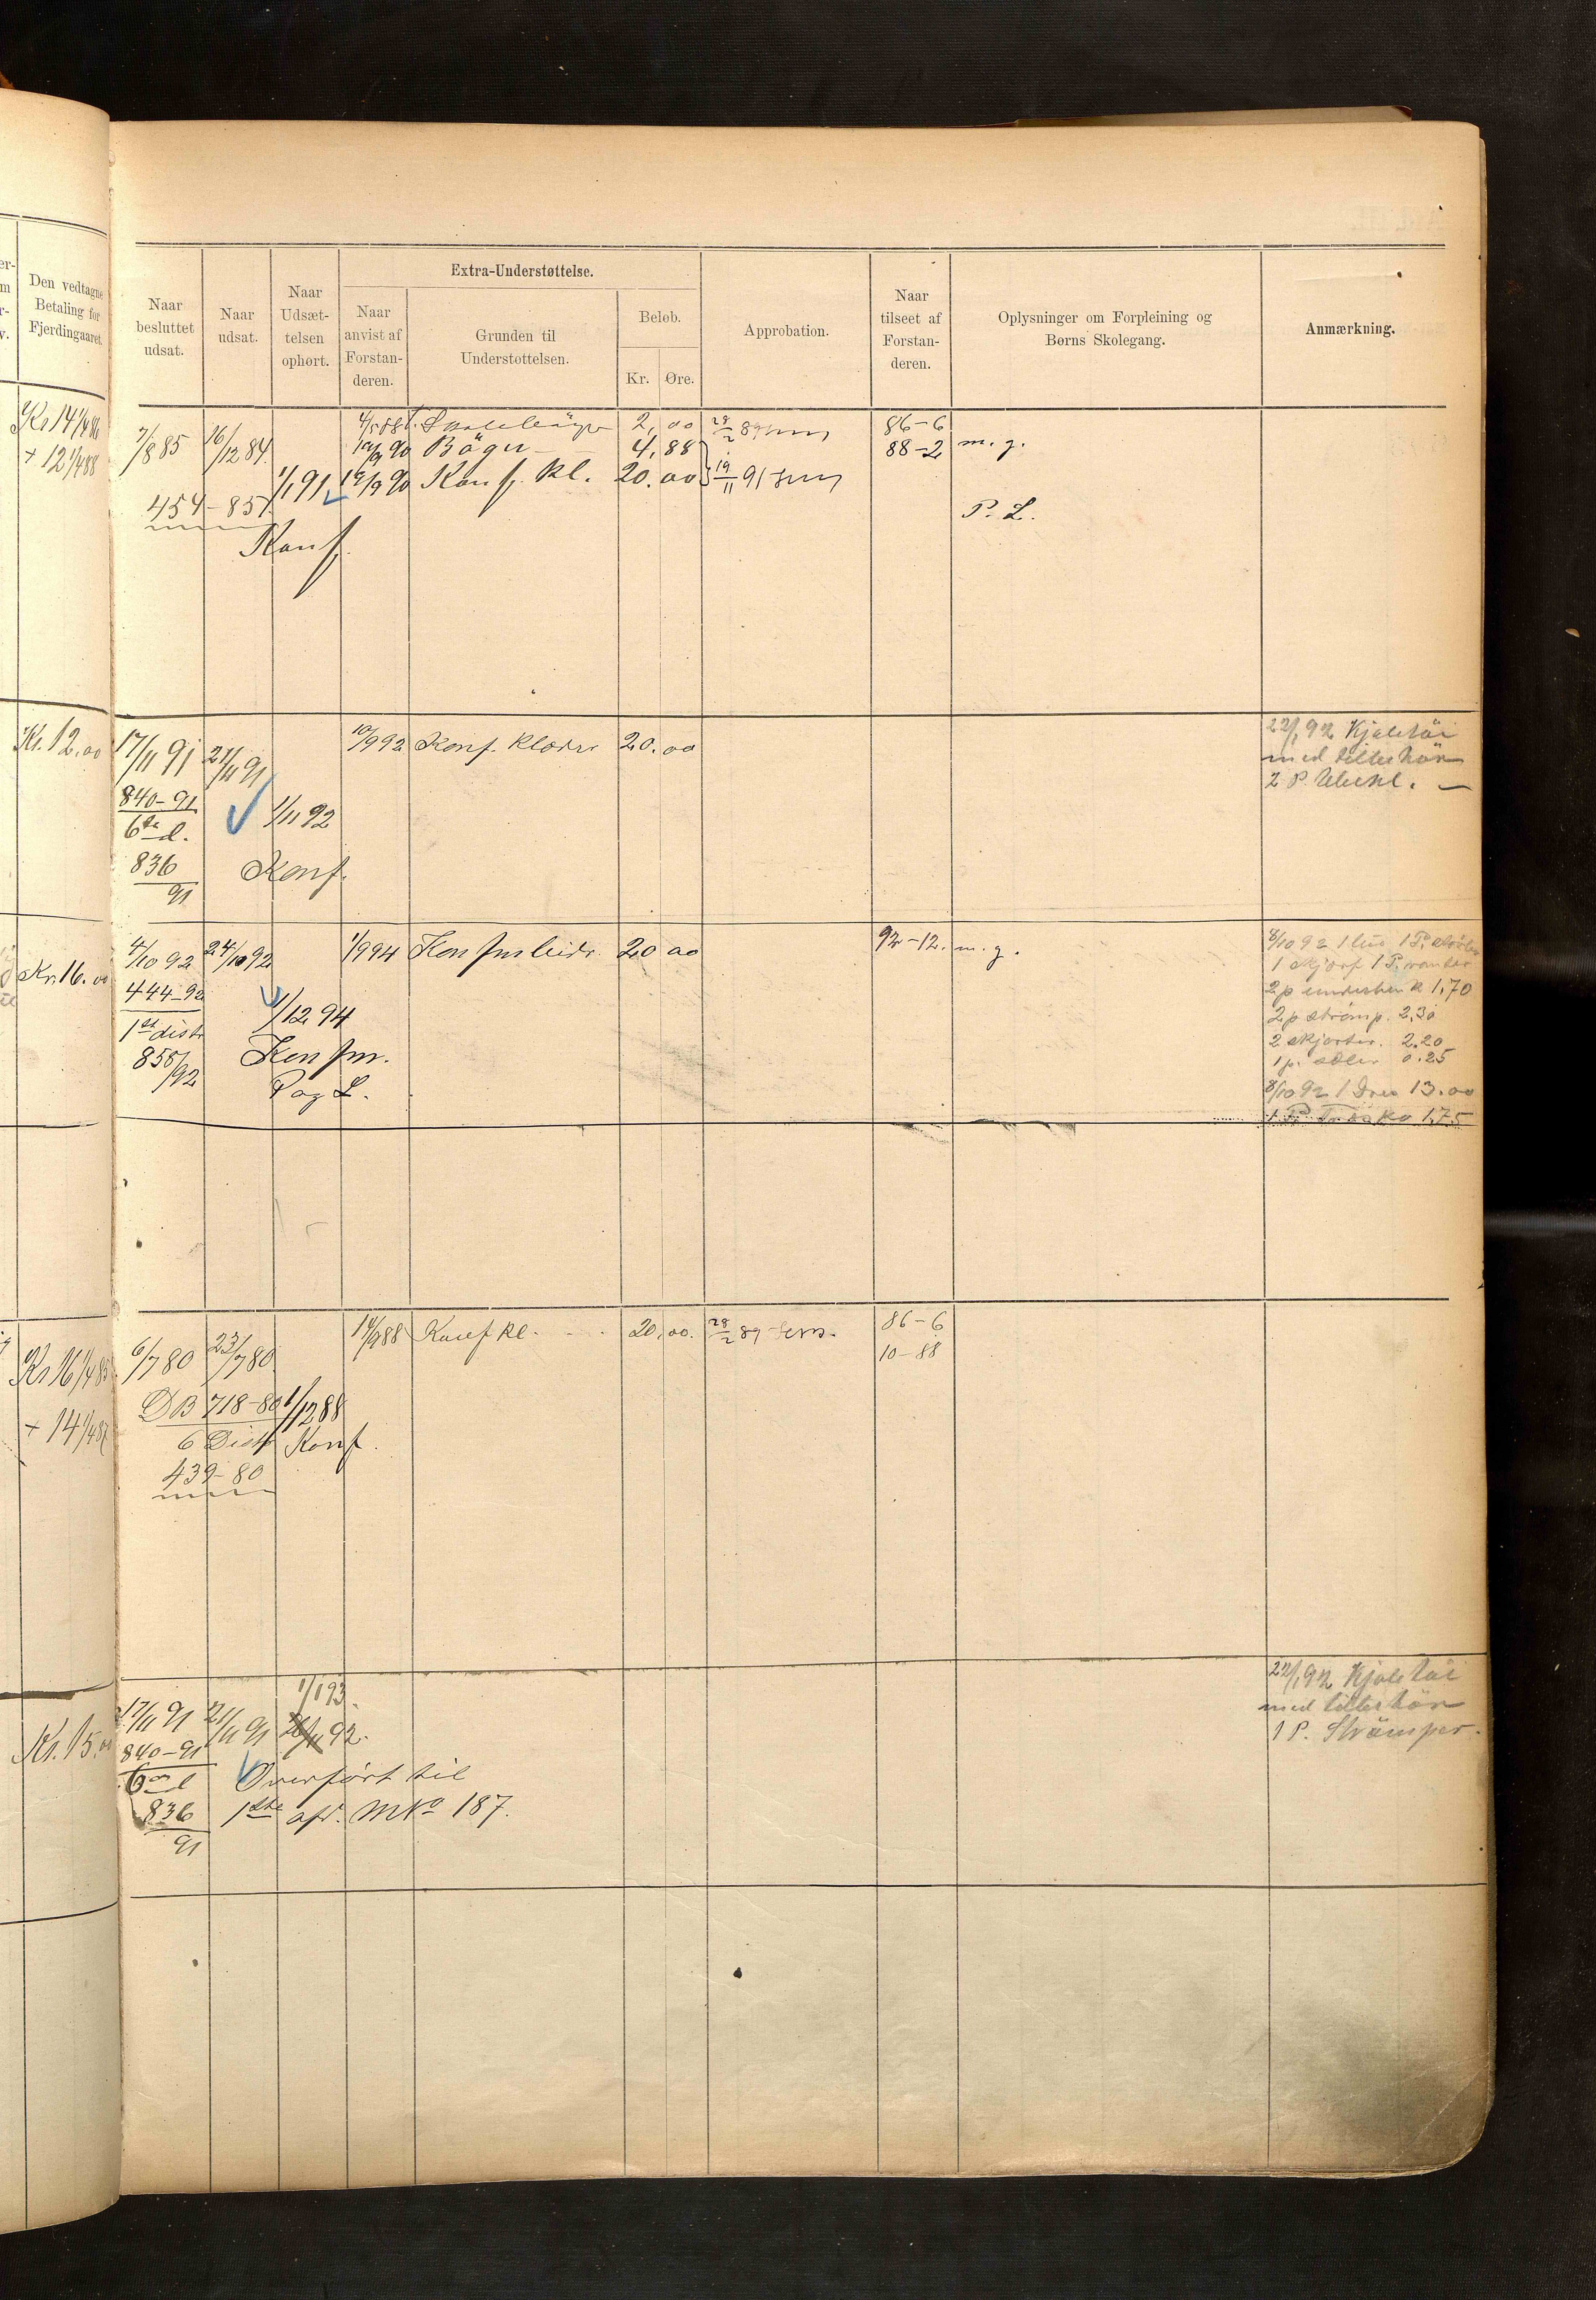 Den vedtagne
Betaling for
Fjerdingaaret.
Naar
besluttet
udsat.
Naar
udsat.
Naar
Udsæt-
telsen
ophørt.
Extra-Understøttelse.
Naar
anvist af
Forstan-
deren.
Grunden til
Understøttelsen.
Beløb.
Kr.
Øre.
Approbation.
Naar
tilseet af
Forstan-
deren.
Oplysninger om Forpleining og
Børns Skolegang.
Anmærkning.
Kr 14 1/4 86
+ 12 1/4 88
7/8 85 16/12 84 2,00 28/2 89 86-6
90 Bøger 4,88 88-2 m. g.
1/1 91 19/9 90 Konf. Kl. 20.00 19/11 91
454-85 P. L.
Konf.
Kr. 12.00 17/11 91 21/11 91 10/9 92 Konf. Klæder 20.00 22/1 92 Kjoletöi
med tilbehör
2 P.
840-91 1/11 92
6te d.
836 Konf.
91
Kr. 16.00 4/10 92 24/10 92 1/9 94 20 00 92-12. m. g.
444-92
1/12 94
1st distr
858/92 Konfm.
P og L.
1 Skjørt 1 P. vanter
2 p 1,70
2 p strömp. 2.30
2 skjorter. 2.20
1 p. 0.25
8/10 92 1 13.00
1 P. Træsko 1,75
Kr 16 1/4 85
+ 14 1/4 87
6/7 80 23/7 80 14/9 88 Konf kl. 20.00. 28/2 89 86-6
10-88
DB 718-80 1/12 88
6 Distr Konf.
439-80
1/1 93
Kr. 15.00 17/11 91 21/11 91 92. 22/1 92 Kjoletöi
med tilbehör
1 P. Strömper.
840-91
Overført til
836 1ste afd. MNo 187.
91